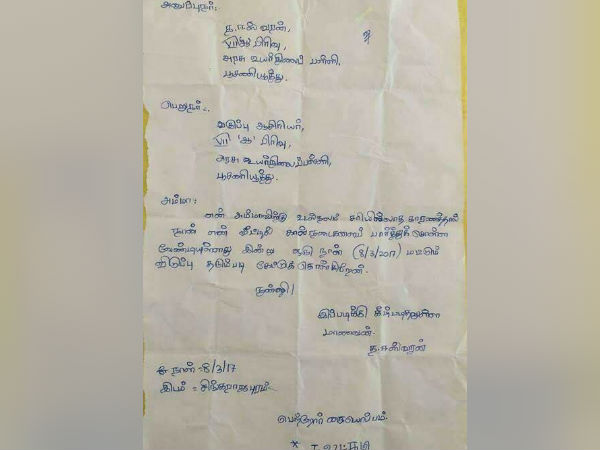 அனுப்புநர்:-
த.ஈஸ்வரன்,
VII 'ஆ' பிரிவு,
அரசு உயர்நிலைப் பள்ளி,
பெறுநர்:-
வகுப்பு ஆசிரியர்,
VII 'ஆ' பிரிவு,
அரசு உயர்நிலைப்பள்ளி,
அம்மா:
என் அம்மாவிற்கு உடல்நலம் சரியில்லாத காரணத்தால்
நான் என் வீட்டில் கால்நடைகளைப் பார்த்துக் கொள்ள
வேண்டியுள்ளது இன்று ஒரு நாள் (8/3/2017) மட்டும்
விடுப்பு தரும்படி கேட்டுக் கொள்கிறேன்.
நன்றி!
இப்படிக்கு கீழ்படிதலுள்ள
மாணவன்.
த.ஈஸ்வரன்
நாள் =8/3/17
இடம் =
பெற்றோர் கையொப்பம்.
*